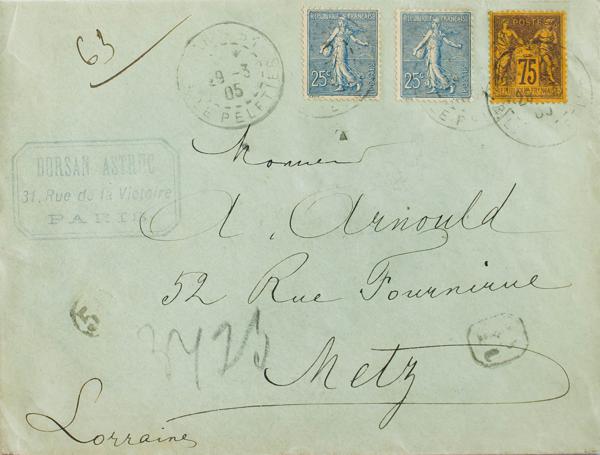 63
29 -3
05
LE PELETIER
REPUBLIQUE FRANÇAISE
25c
REPUBLIQUE FRANÇAISE
25c
POSTE
75
REPUBLIQUE FRANÇAISE
DORSAN ASTRUC
31, Rue de la Victoire
PARIS
Monsieur
A. Arnould
52 Rue Fournirue
Metz
Lorraine
R